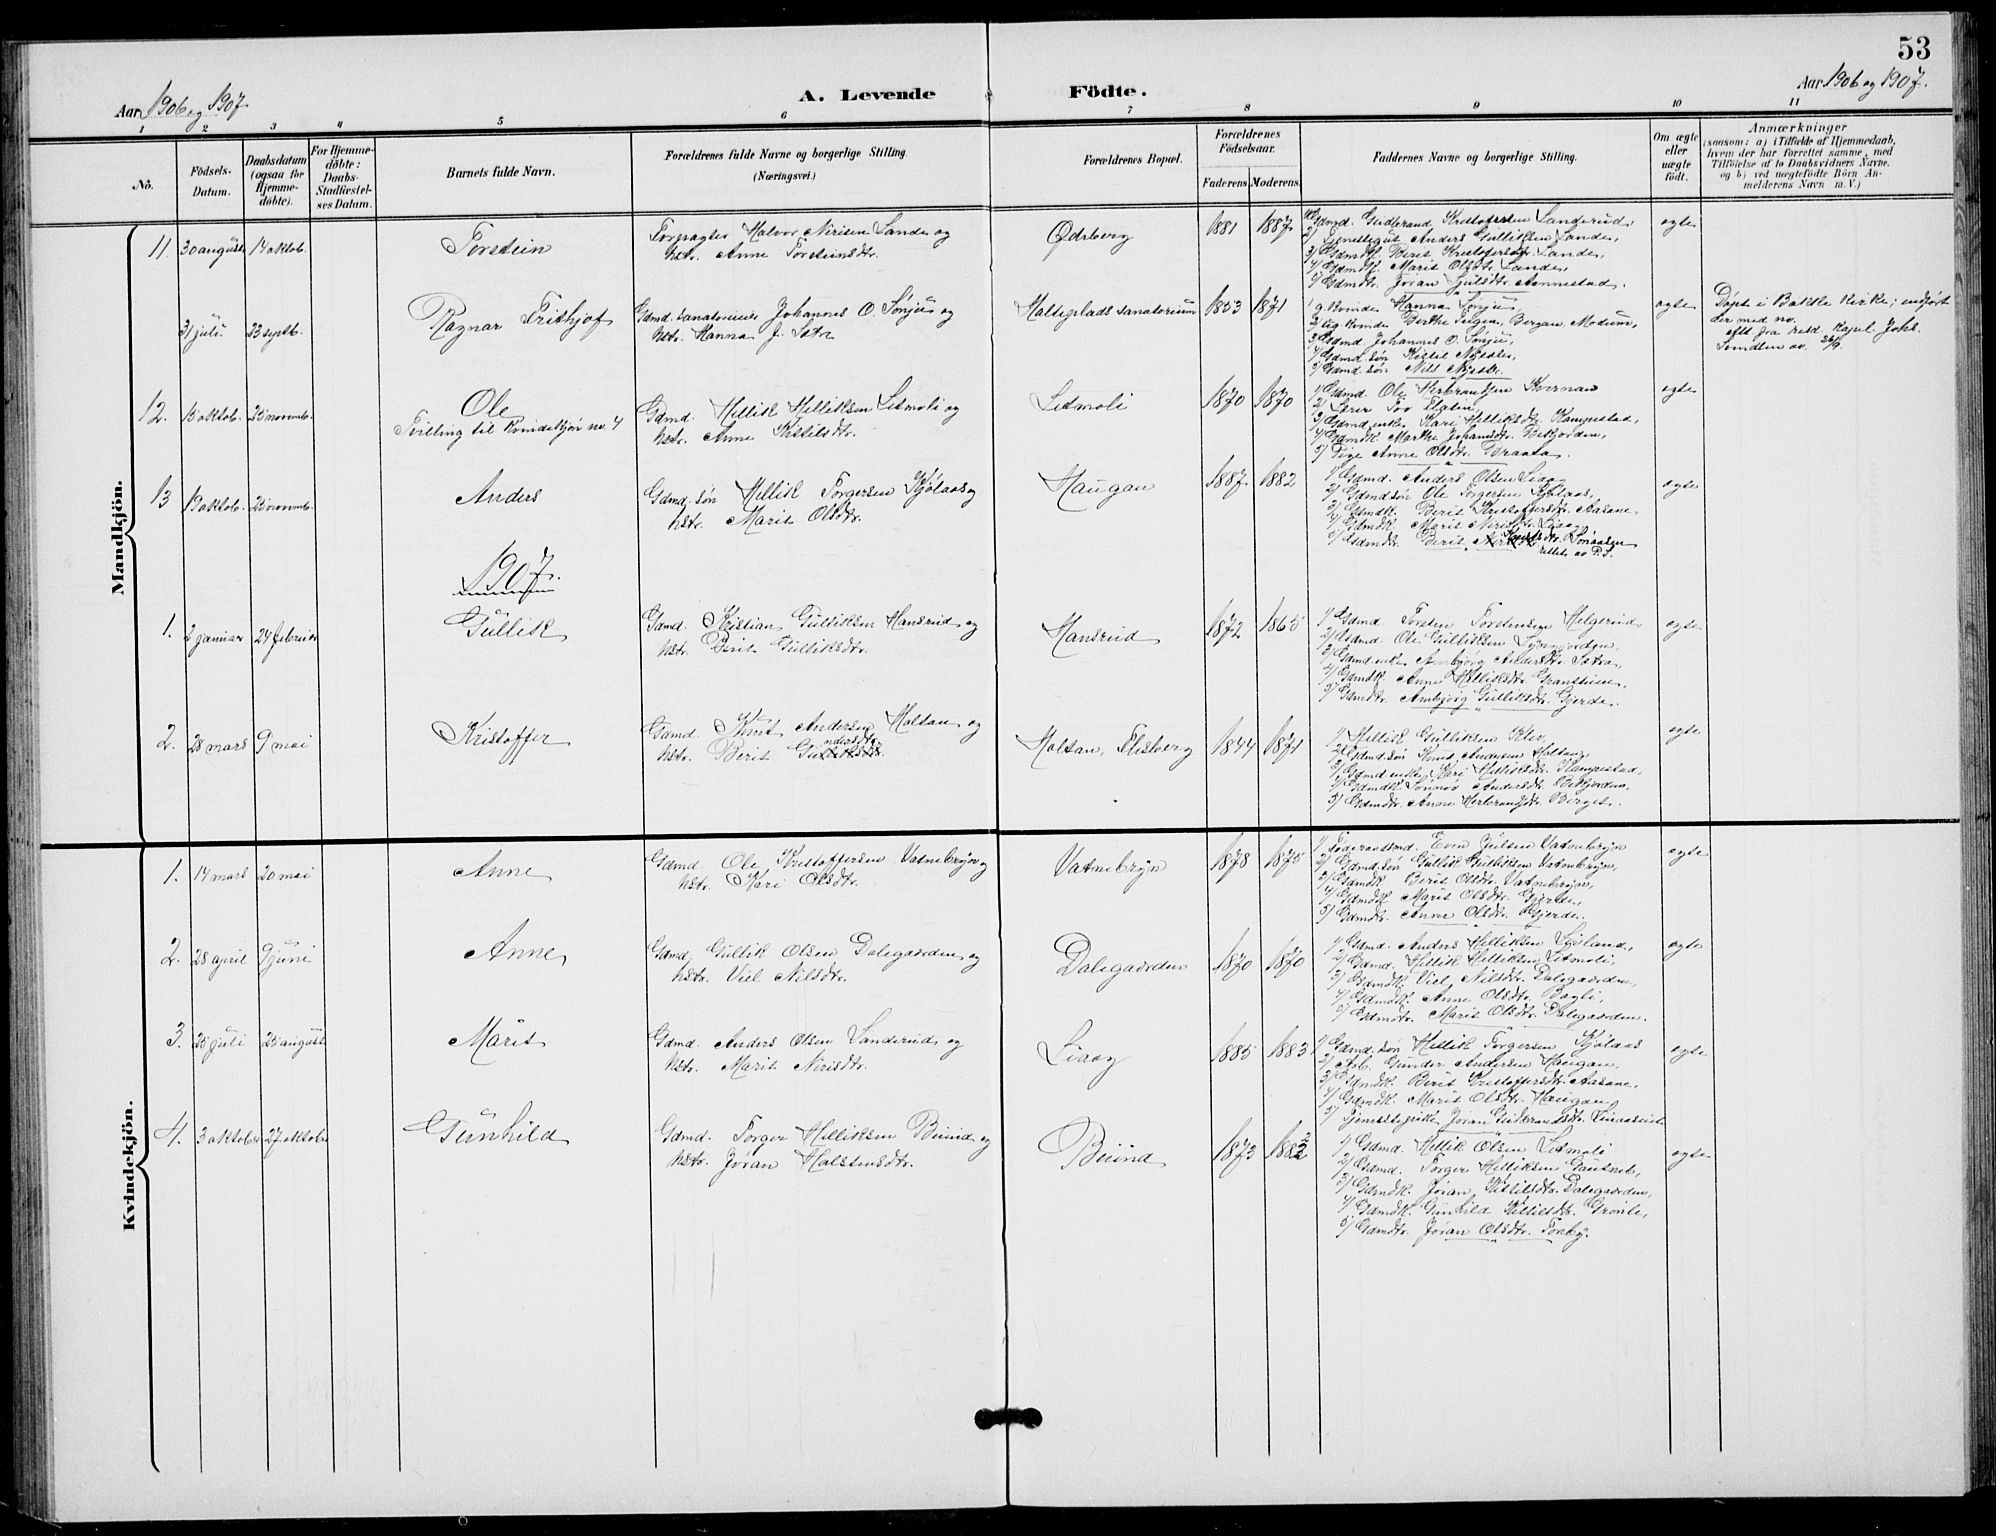 53
Aar 1906 og 1907.
A. Levende
Födte.
Aar 1906 og 1907.
1 2 3 4 5 6 7 8 9 10 11
No.
Födsels-Datum.
Daabsdatum (ogsaa for Hjemme-döbte).
For Hjemme-döbte: Daabs-Stadfæstel-ses Datum.
Barnets fulde Navn.
Forældrenes fulde Navne og borgerlige Stilling.
(Næringsvei.)
Forældrenes Bopæl.
Forældrenes Födselsaar.
Faderens. Moderens.
Faddernes Navne og borgerlige Stilling.
Om ægte eller uægte födt.
Anmærkninger
(saasom: a) i Tilfælde af Hjemmedaab, hvem der har forrettet samme, med Tilföielse af to Daabsvidners Navne. og b) ved uægtefödte Börn An-melderens Navn m. V.)
Mandkjön.
11. 30 august 14 oktob. Torstein
Forpagter Halvor Nirisen Lande og
hstr. Anne Torsteinsdtr.
Ødsberg 1881 1887
1/ Gdmd. Gudbrand Kristoffersen Landerud,
2/ Tjenestegut Anders Gulliksen Lande,
3/ Gdmdk. Berit Kristoffersdtr. Lande,
4/ Gdmdk. Marit Olsdtr. Lande,
5/ Gdmdtr. Jøran Juelsdtr. Aannestad.
egte
31 juli 23 septb. Ragnar Frithjof
Gdmd. sanatorieeier Johannes O. Sønju og
hstr. Hanna J. Sætr
Holteplads sanatorium 1853 1871
1/ g. kvinde Hanna Sønju,
2/ ug. kvinde Berthe Bergan, Modum,
3/ Gdmd. Johannes O. Sønju,
4/ Gdmd. søn Kittil
5/ Gdmd. søn Nils
egte
Døpt i Bakke kirke; indført
der med no.
efld. fra resd. kapel. Johs.
Svendsen av 26/9.
12. 15 oktob. 25 novemb. Ole
Tvilling til kvindekjøn no. 4
Gdmd. Hellik Helliksen Letmoli og
hstr. Anne Kittilsdtr.
Letmoli 1870 1870
1/ Gdmd. Ole Herbrandsen Kvernan
2/ Lærer Tov Flatin,
3/ Gdmd. enke Kari Helliksdtr. Kampestad,
4/ Gdmdk. Marthe Johansdtr. Bekjorden,
5/ Pige Anne Olsdtr. Braata.
egte
13 19 oktob. 25 novemb. Anders
Gdmd. søn Hellik Torgersen Kjølaas og
hstr. Marit Olsdtr.
Haugan 1887 1882
1/ Gdmd. Anders Olsen Liaag
2/ Gdmdsøn Ole Torgersen Kjølaas,
3/ Gdmdk. Berit Kristoffersdtr. Aasane,
4/ Gdmdk. Marit Nirisdtr. Liaag,
5/ Gdmdtr. Berit
rettet av P.S.
egte
1907.
1. 2 januar 24 februar Gullik
Gdmd. Kristian Gulliksen Hansrud og
hstr. Berit Gulliksdtr.
Hansrud 1872 1865
1/ Gdmd. Torsten Torstensen Helgerud
2/ Gdmd. Ole Gulliksen
3/ Gdmd. enke Ambjørg Andersdtr. Sætra,
4/ Gdmdk. Anne Helliksdtr. Granhus,
5/ Gdmdtr. Ambjørg Gulliksdtr. Gjerde.
egte
2. 28 mars 9 mai Kristoffer
Gdmd. Knut Andersen Holtan og
hstr. Berit
Holtan, Flesberg 1844 1871
1/ Hellik Gulliksen Klev,
2/ Gdmd. søn Knut Andersen Holtan,
3/ Gdmd. enke Kari Helliksdtr. Kampestad,
4/ Gdmdk. Sønnøv Andersdtr. Bekjorden,
5/ Gdmdtr. Anne Herbrandsdtr. Berget.
egte
Kvindekjön.
1. 14 mars 20 mai Anne
Gdmd. Ole Kristoffersen Vatnebryn og
hstr. Kari Olsdtr.
Vatnebryn 1878 1875
1/ Føderaadsmd. Even Juelsen Vatnebryn
2/ Gdmd. søn Gullik Gulliksen Vatnebryn,
3/ Gdmdk. Berit Olsdtr. Vatnebryn,
4/ Gdmdk. Marit Olsdtr. Gjerde,
5/ Gdmdtr. Anne Olsdtr. Gjerde.
egte
2. 28 april 9 juni Anne
Gdmd. Gullik Olsen Dalegaarden og
hstr. Viel Nilsdtr.
Dalegaarden 1870 1870
1/ Gdmd. Anders Helliksen Ljøland,
2/ Gdmd. Hellik Helliksen Letmoli,
3/ Gdmdk. Viel Nilsdtr. Dalegaarden,
4/ Gdmdk. Anne Olsdtr. Bagli,
5/ Gdmdtr. Marit Olsdtr. Dalegaarden.
egte
3. 25 juli 25 august Marit
Gdmd. Anders Olsen Landerud og
hstr. Marit Nirisdtr.
Liaag 1885 1883
1/ Gdmd. søn Hellik Torgersen Kjølaas
2/ Arb. Gunder Andersen Haugan,
3/ Gdmdk. Berit Kristoffersdtr. Aasane,
4/ Gdmdk. Marit Olsdtr. Haugan,
5/ Tjenestepike Jøran Gudbrandsdtr.
egte
4. 3 oktober 27 oktober Gunhild
Gdmd. Torger Helliksen Buind og
hstr. Jøran Halstensdtr.
Buind 1873 1882
1/ Gdmd. Hellik Olsen Letmoli
2/ Gdmd. Torger Helliksen Gautneb,
3/ Gdmdk. Jøran Kittilsdtr. Dalegaarden,
4/ Gdmdk. Gunhild Kittilsdtr. Grønli,
5/ Gdmdtr. Jøran Olsdtr. Foreby.
egte